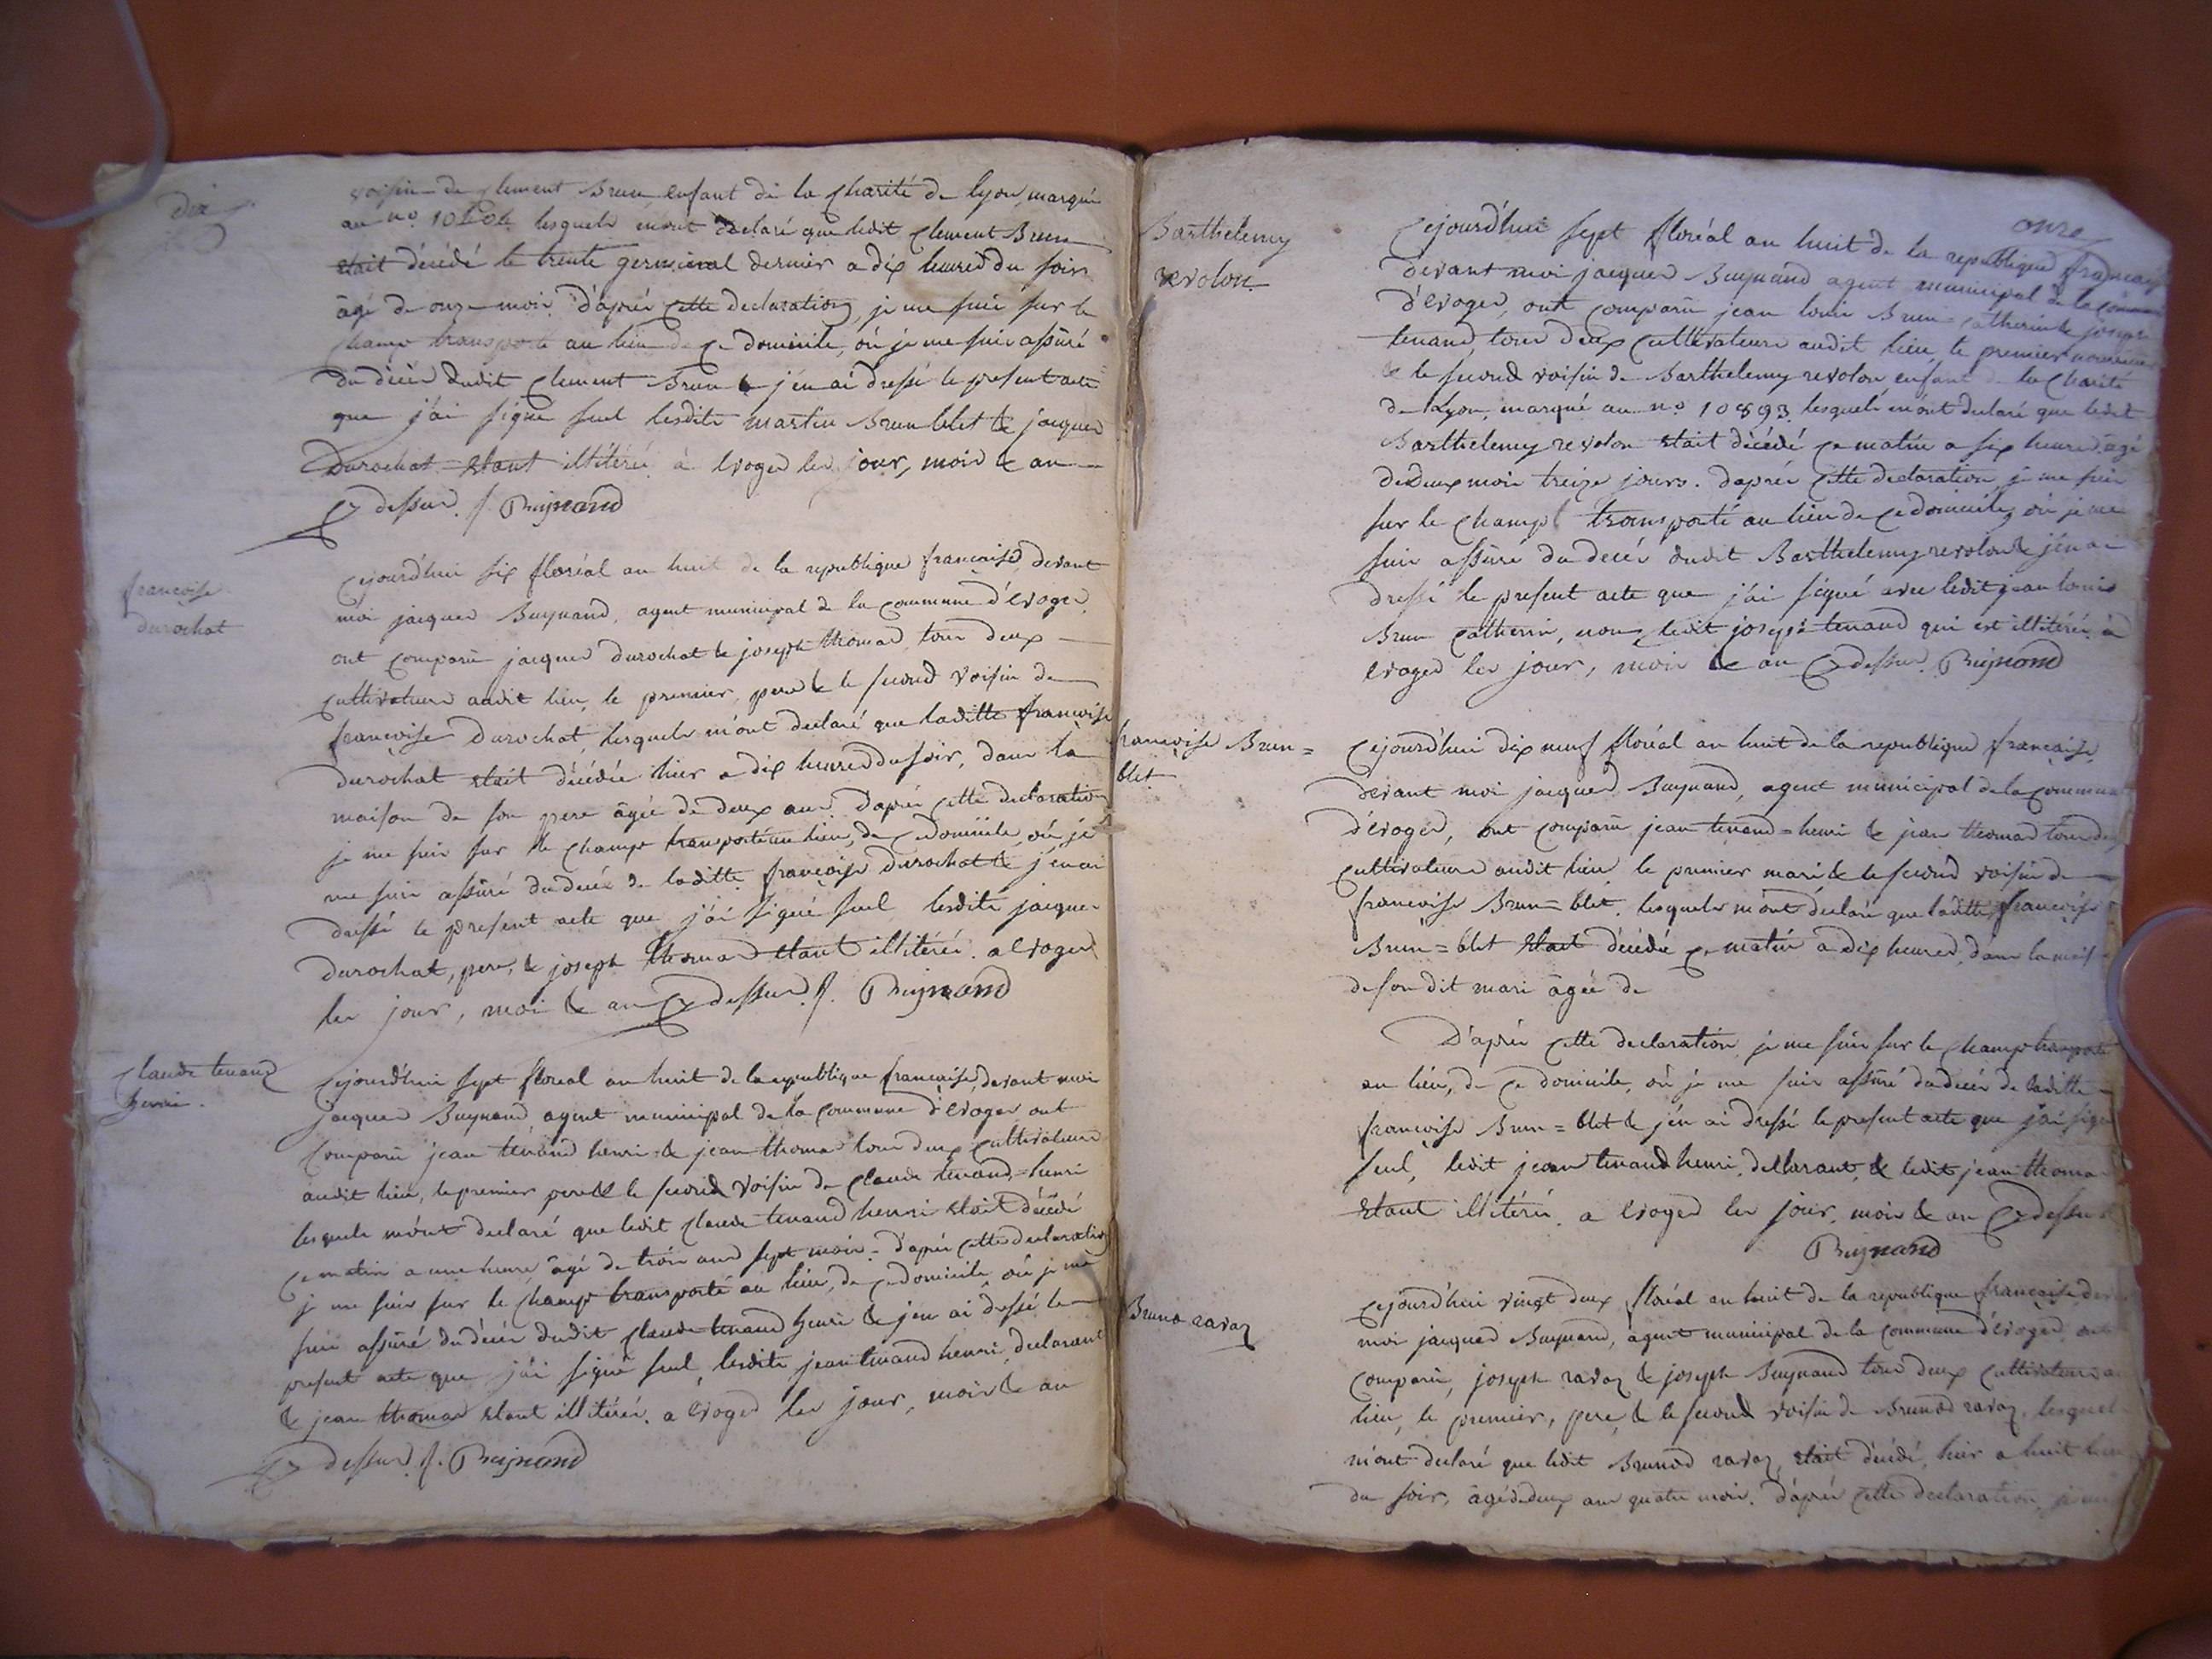 dix
voisin de clement Brun, enfant de la charité de lyon, marqué
au no. lesquels m'ont declaré que ledit clement Brun
etait décédé le trente germinal dernier a dix heures du soir
âgé de onze mois. d'après cette declaration, je me suis sur le
champ transporté au lieu de ce domicile, où je me suis assuré
du décès dudit clement Brun & j'en ai dressé le present acte
que j'ai signé seul lesdits martin Brun blet & jacques
Durochat etant illitérés. à Evoges les jour, mois & an
cy dessus. Buynand
francoise
durochat
Cejourd'hui six floréal an huit de la republique francaise, devant
moi jacques Buynand, agent municipal de la commune d'Evoges
ont comparu jacques durochat & joseph thomas, tous deux
cultivateurs audit lieu, le premier, pere & le second voisin de
francoise Durochat, lesquels m'ont declaré que laditte francoise
durochat etait décédée hier a dix heures du soir, dans la
maison de son pere âgée de deux ans. d'après cette declaration
je me suis sur le champ transporté au lieu, de ce domicile, où je
me suis assuré du decès de laditte francoise durochat & j'en ai
dressé le present acte que j'ai signé seul lesdits jacques
Durochat, pere, & joseph thomas etant illitérés. a Evoges
les jour, mois & an cy dessus. Buynand
Claude tenand
henri.
Cejourd'hui sept floreal an huit de la republique francaise, devant moi
jacques Buynand, agent municipal de la commune d'Evoges ont
comparu jean tenand henri & jean thomas tous deux cultivateurs
audit lieu, le premier pere & le second voisin de claude tenand=henri
lesquels m'ont declaré que ledit claude tenand henri etait décédé
ce matin a une heure âgé de trois ans sept mois. d'après cette declaration
je me suis sur le champ transporté au lieu, de ce domicile, où je me
suis assuré du décès dudit claude tenand henri & j'en ai dressé le
present acte que j'ai signé seul, lesdits jean tenand henri, declarant
& jean thomas etant illitérés. a Evoges les jour, mois & an
cy dessus. Buynand
onze
Barthelemy
revolon.
Cejourd'hui sept floréal an huit de la republique francaise
devant moi jacques Buynand agent municipal de la commune
d'Evoges, ont comparu jean louis Brun=catherin & joseph
tenand, tous deux cultivateurs audit lieu, le premier
& le second voisin de Barthelemy revolon, enfant de la charité
de Lyon, marqué au no 10893. lesquels m'ont declaré que ledit
Barthelemy revolon etait décédé ce matin a six heures, âgé
de deux mois treize jours. d'après cette declaration, je me suis
sur le champ transporté au lieu de ce domicile, où je me
suis assuré du decès dudit Barthelemy revolon & j'en ai
dressé le present acte que j'ai signé avec ledit jean louis
Brun catherin, non ledit joseph tenand qui est illitéré, à
Evoges les jour, mois & an cy dessus. Buynand
francoise Brun=
blet
Cejourd'hui dix neuf floréal an huit de la republique francaise,
devant moi jacques Buynand, agent municipal de la commune
d'Evoges, ont comparu jean tenand=henri & jean thomas tous
cultivateurs audit lieu le premier mari & le second voisin de
francoise Brun=blet, lesquels m'ont declaré que laditte francoise
Brun=blet etait décédée ce matin a dix heures, dans la
de son dit mari âgée de
D'après cette declaration, je me suis sur le champ transporté
au lieu, de ce domicile, où je me suis assuré du décès de laditte
francoise Brun=blet & j'en ai dressé le present acte que j'ai signé
seul, ledit jean tenand henri, declarant, & ledit jean thomas
etant illitérés. a Evoges les jour, mois & an cy dessus.
Buynand
Bruno ravaz
Cejourd'hui vingt deux floréal an huit de la republique francaise
moi jacques Buynand, agent municipal de la commune d'Evoges, ont
comparu, joseph ravaz & joseph Buynand tous deux cultivateurs
lieu, le premier, pere, & le second voisin de Brunod ravaz, lesquels
m'ont declaré que ledit Brunod ravaz, etait décédé, hier a huit
du soir, âgé de deux ans quatre mois. d'après cette declaration,